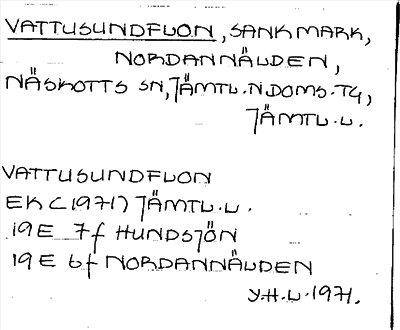 VATTUSUNDFLON, SANKMARK,
NORDANNÄLDEN,
NÄSKOTTS SN, JÄMTL.N.DOMS.TG,
JÄMTL.L.
VATTUSUNDFLON
EK (1971) JÄMTL.L.
19E 7f HUNDSJÖN
19E 6f NORDANNÄLDEN
Y.H.L. 1971.